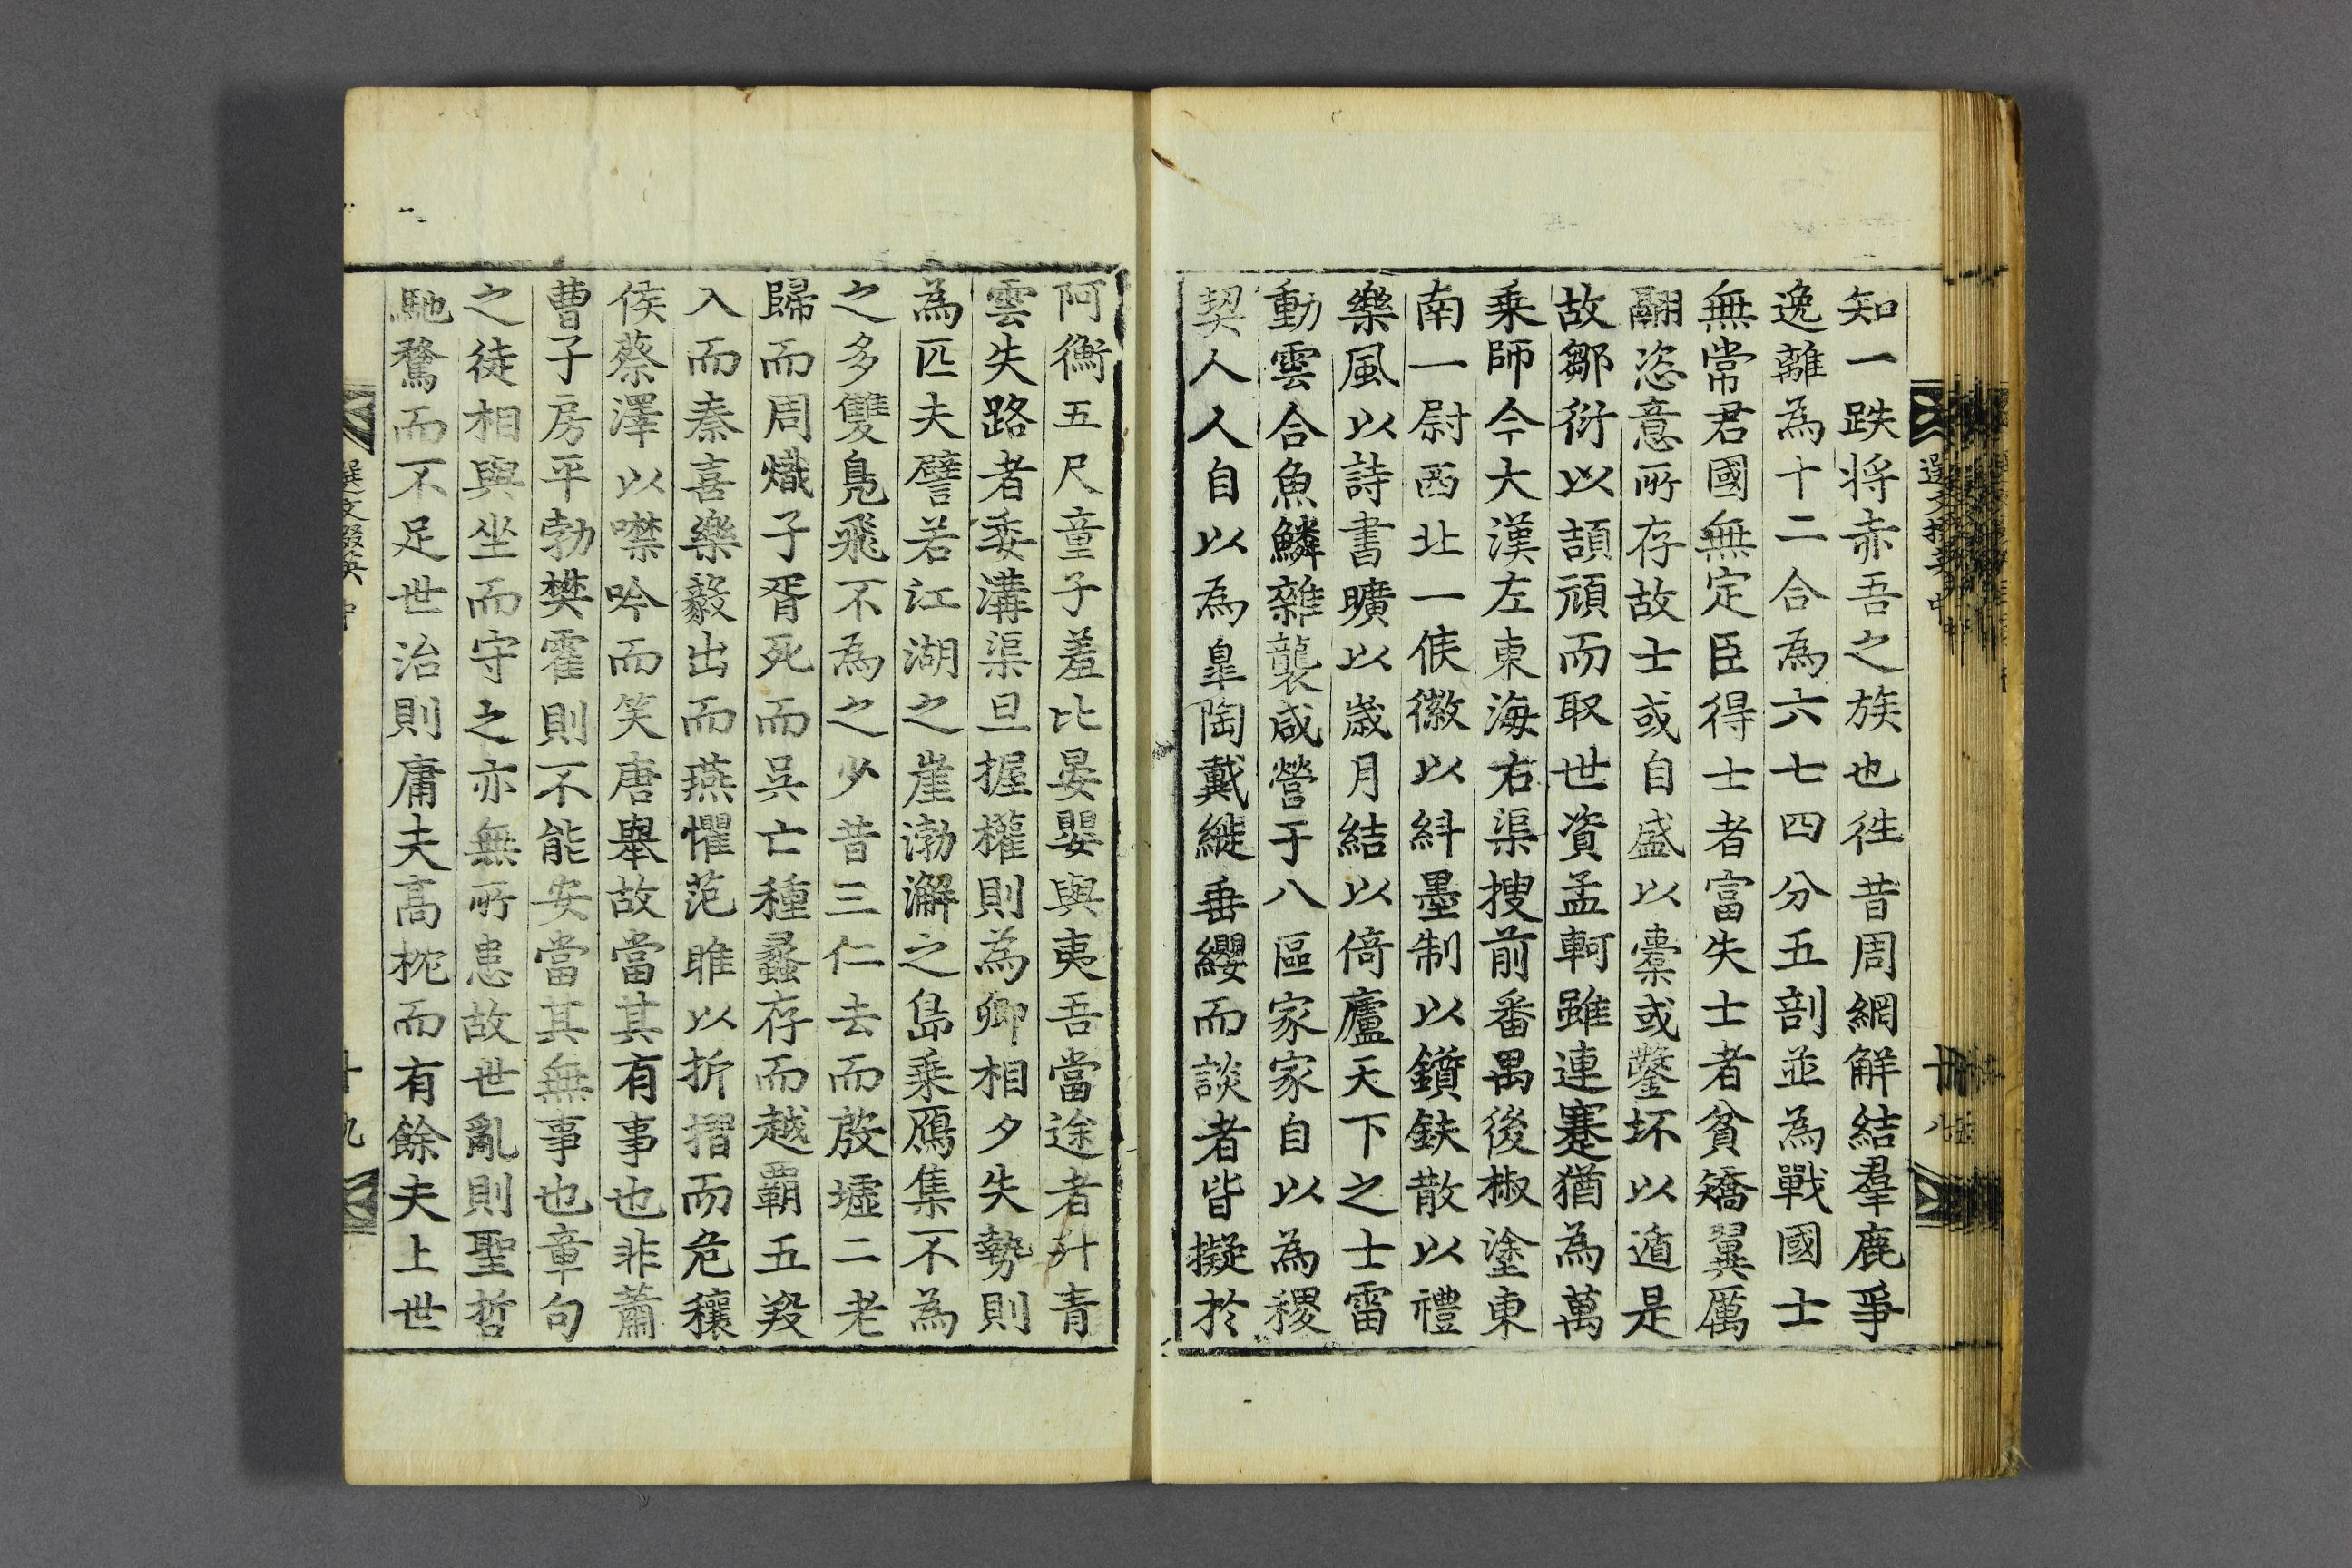 知一跌将赤吾之族也徃昔周網解結羣鹿爭
逸離為十二合為六七四分五剖並為戰國士
無常君國無定臣得士者富失士者貧矯翼厲
翮恣意所存故士或自盛以橐或鑿坏以遁是
故鄒衍以頡頏而取世資孟軻雖連蹇猶為萬
乘師今大漢左東海右渠搜前番禺後椒塗東
南一尉西北一候徽以糾墨制以鑕鈇散以禮
樂風以詩書曠以歲月結以倚廬天下之士雷
動雲合魚鱗雜襲咸營于八區家家自以為稷
契人人自以為皐陶戴縰垂纓而談者皆擬於
阿衡五尺童子羞比晏嬰與夷吾當途者升青
雲失路者委溝渠旦握權則為卿相夕失勢則
為匹夫譬若江湖之崖渤澥之島乗鴈集不為
之多雙鳬飛不為之少昔三仁去而殷墟二老
歸而周熾子胥死而吳亡種蠡存而越覇五羖
入而秦喜樂毅出而燕懼范雎以折摺而危穰
侯蔡澤以噤吟而笑唐舉故當其有事也非蕭
曹子房平勃樊霍則不能安當其無事也章句
之徒相與坐而守之亦無所患故世亂則聖哲
馳騖而不足世治則庸夫高枕而有餘夫上世
選文掇英 中
十九